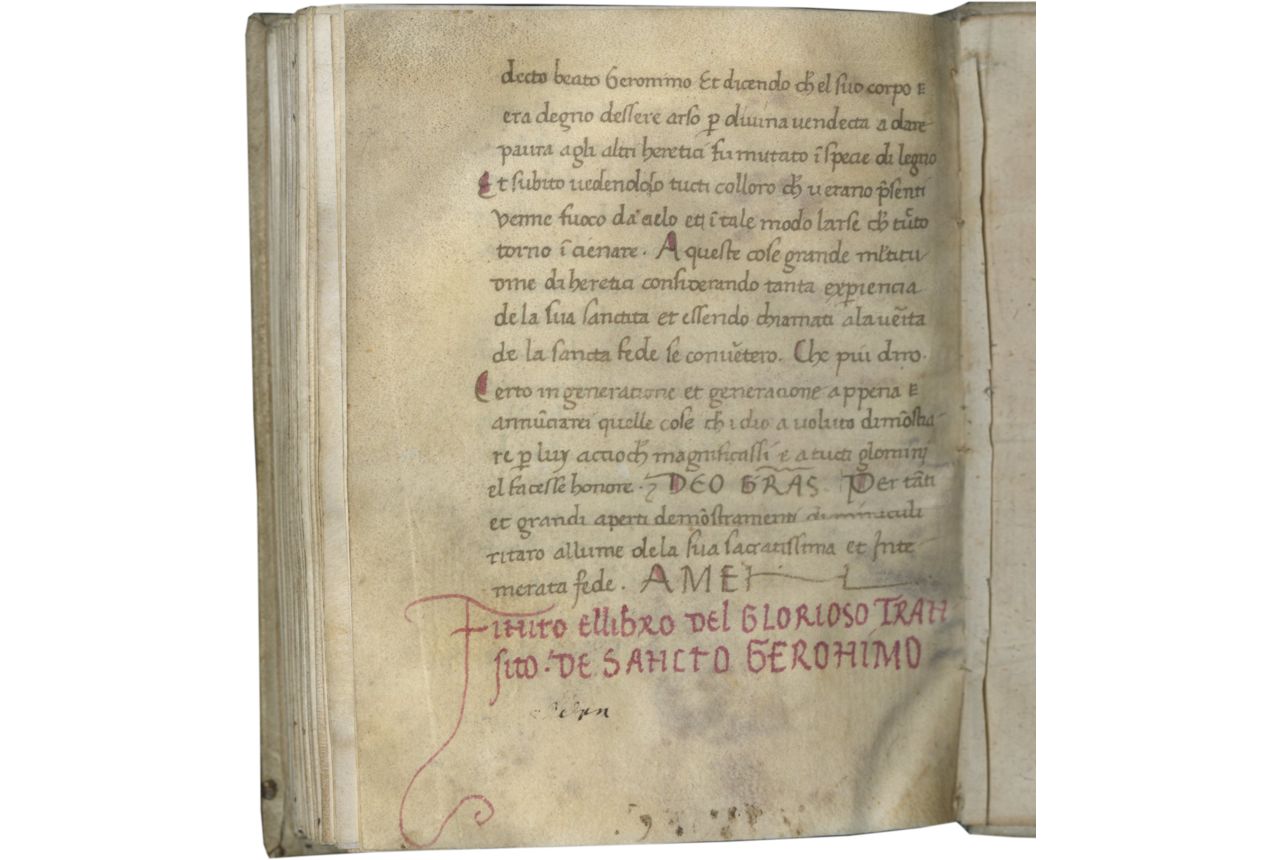 decto beato Geronimo Et dicendo ch̄ el suo corpo
era degno dessere arso ꝑ diuina uendecta a dare
paura agli altri heretici fu mutato ī specie di legno
Et subito uedendolo tucti colloro ch̄ uerano p̄senti
venne fuoco da cielo et ī tale modo larse ch̄ tūto
torno ī cienare. A queste cose grande ml̄titu
dine di heretici considerando tanta exꝑiencia
de la sua sanctita et essendo chiamati a la ūeita
de la sancta fede se conūetero. Che piu diro.
Certo in generatione et generacione appena
annūciarei quelle cose ch̄ idio a voluto dimōstra
re ꝑ luy accioch̄ magnificassi e a tucti glomini
el facesse honore. DEO GR̄AS Per tāti
et grandi aperti demōstramenti di miraculi
ritaro allume dela sua sacratissima et Inte
merata fede. AMEN
Finito ellibro del GLORIOSO TRAN
sito. DE SANCTO GERONIMO